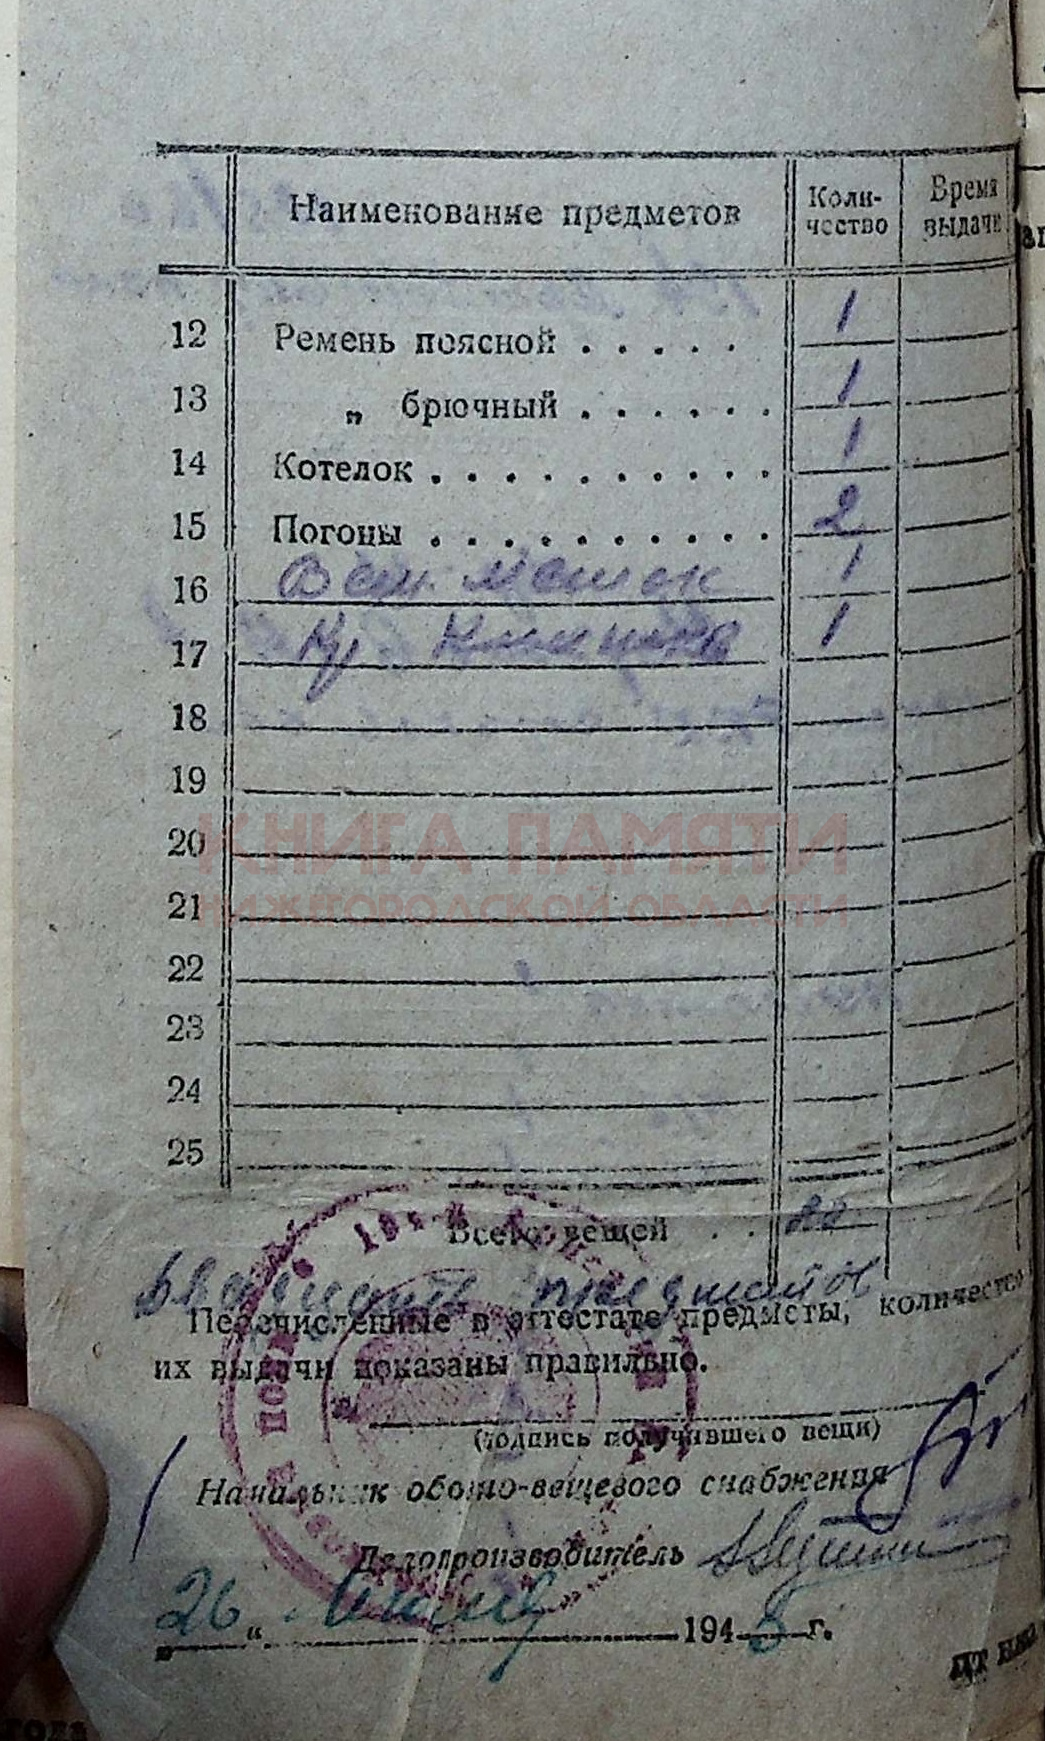 Наименование предметов
Коли-
чество
Время
выдачи
12 Ремень поясной . . . . . 1
13 „ брючный . . . . . . 1
14 Котелок . . . . . . . . . . 1
15 Погоны . . . . . . . . . . 2
16 Вещ. мешок 1
17 1
18
19
20
КНИГА ПАМЯТИ
21
НИЖЕГОРОДСКОЙ ОБЛАСТИ
22
23
24
25
Всего вещей . .
Двадцать предметов
Перечисленные в аттестате предметы, количество
их выдачи показаны правильно.
(подпись получившего вещи)
Начальник обозно-вещевого снабжения
Делопроизводитель
„ 26 “ 1945 г.
года